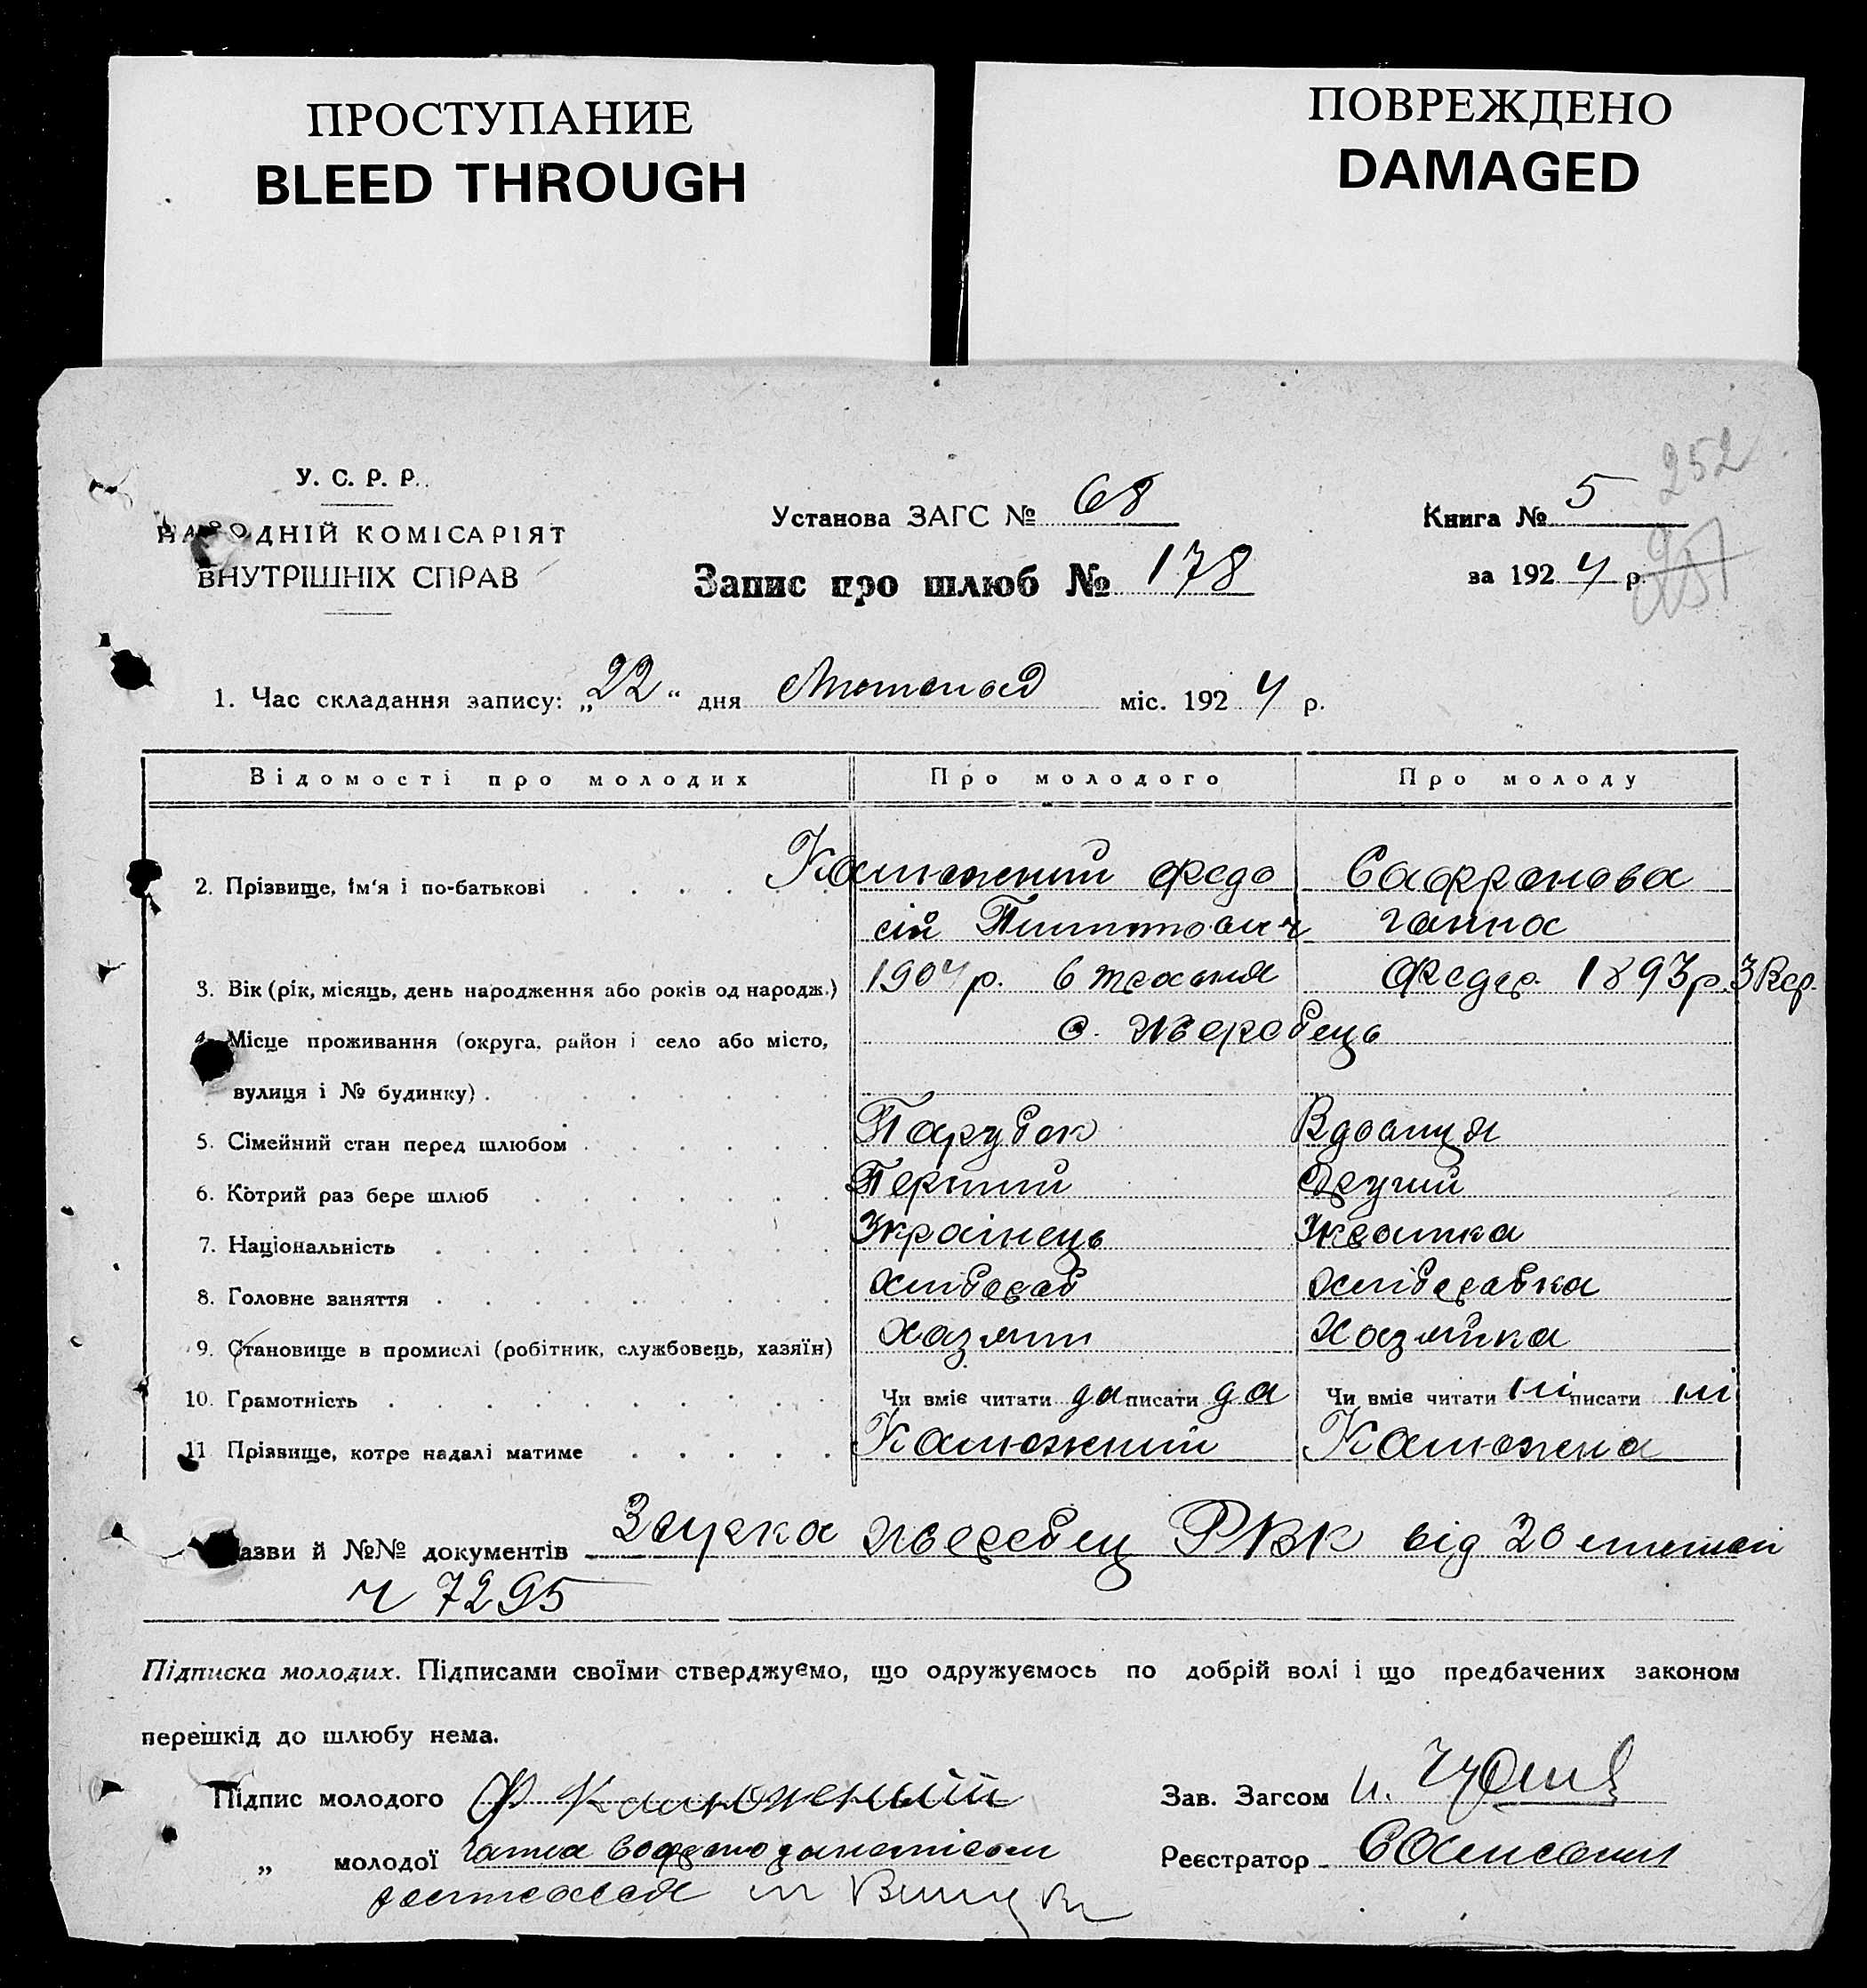 ПРОСТУПАНИЕ
BLEED THROUGH
ПОВРЕЖДЕНО
DAMAGED
252
У. С. Р. Р.
НАРОДНІЙ КОМІСАРІЯТ
ВНУТРІШНІХ СПРАВ
Установа ЗАГС № 68
Запис про шлюб № 178
Книга № 5
за 1924 р.
251
1. Час складання запису: „22“ дня Листопад міс. 1924 р.
Відомості про молодих Про молодого Про молоду
2. Прізвище, ім'я і по-батькові . . . . Калюжний Федо Сафронова
сій Пилипович ганна
3. Вік (рік, місяць, день народження або років од народж.) 1904 р. 6 травня Федер. 1893 р. 3 Вер.
4. Місце проживання (округа, район і село або місто, с. Жеребець
вулиця і № будинку) .
5. Сімейний стан перед шлюбом . Парубок Вдовиця
6. Котрий раз бере шлюб . Перший Другий
7. Національність . Україінець
8. Головне заняття . Хлібороб Хліборобка
9. Становище в промислі (робітник, службовець, хазяїн) Хазяін Хазяйка
10. Грамотність . Чи вміє читати да писати да Чи вміє читати ні писати ні
11 Прізвище, котре надалі матиме . Калюжний Калюжна
азви й №№ документів Жеребец РВК від 20
ч 7295
Підписка молодих. Підписами своїми стверджуємо, що одружуємось по добрій волі і що предбачених законом
перешкід до шлюбу нема.
Підпис молодого Ф Калюженый Зав. Загсом
„ молодої ганна Реєстратор